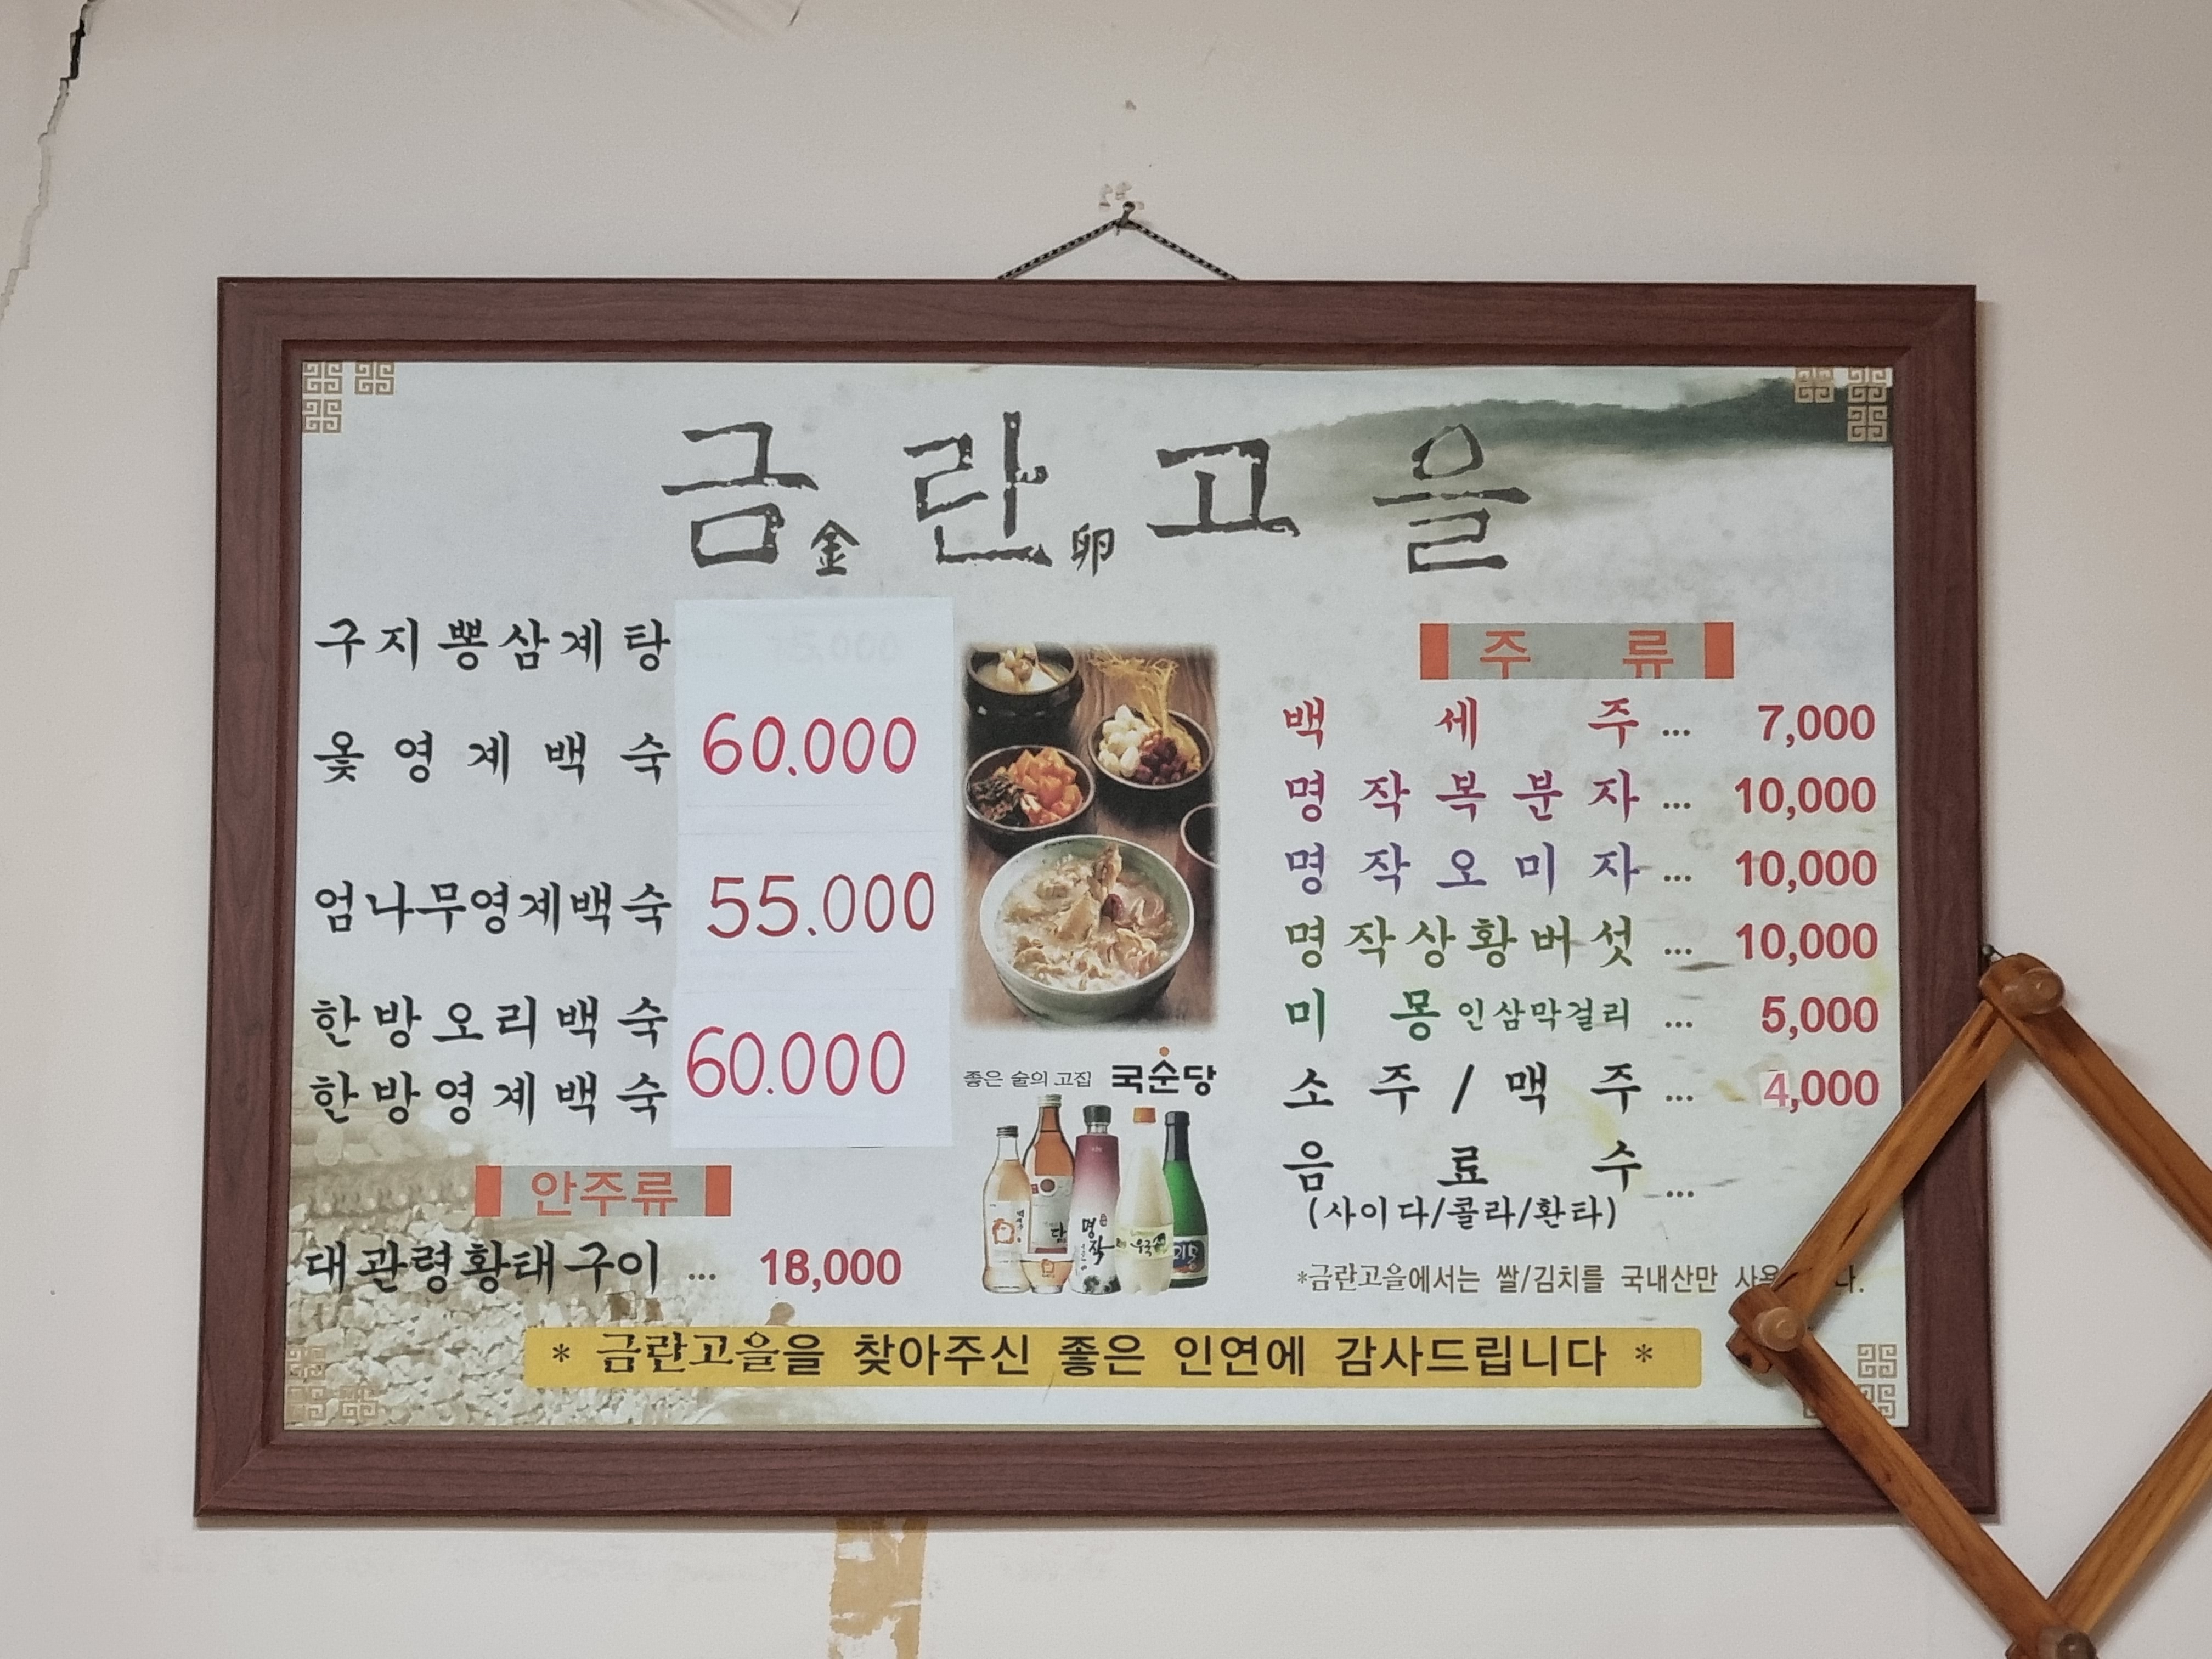 금金란卵고을
구지뽕삼계탕
옻영계백숙 60.000
엄나무영계백숙 55.000
한방오리백숙 60.000
한방영계백숙
안주류
대관령황태구이 ... 18,000
좋은 술의 고집 국순당
명작
주류
백세주 ... 7,000
명작복분자 ... 10,000
명작오미자 ... 10,000
명작상황버섯 ... 10,000
미몽 인삼막걸리 ... 5,000
소주/맥주 ... 4,000
음료수 ...
(사이다/콜라/환타)
*금란고을에서는 쌀/김치를 국내산만
* 금란고을을 찾아주신 좋은 인연에 감사드립니다 *